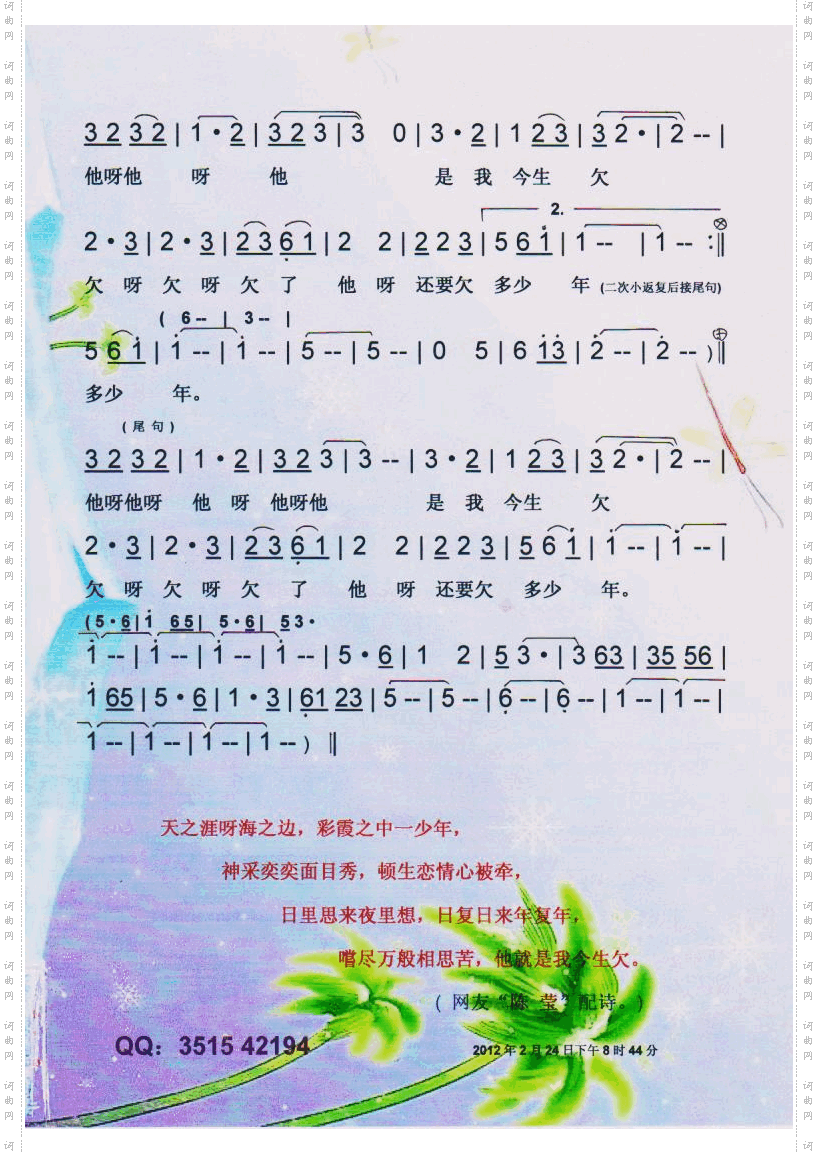 3 2 3 2 | 1 • 2 | 3 2 3 | 3 0 | 3 • 2 | 1 2 3 | 3 2 • | 2 -- |
他呀他 呀 他 是 我 今生 欠
2.
2 • 3 | 2 • 3 | 2 3 6 1 | 2 2 | 2 2 3 | 5 6 1 | 1 -- | 1 -- :‖
欠 呀 欠 呀 欠 了 他 呀 还要欠 多少 年 (二次小返复后接尾句)
( 6 -- | 3 -- |
5 6 1 | 1 -- | 1 -- | 5 -- | 5 -- | 0 5 | 6 1 3 | 2 -- | 2 -- )‖
多少 年。
(尾句)
3 2 3 2 | 1 • 2 | 3 2 3 | 3 -- | 3 • 2 | 1 2 3 | 3 2 • | 2 -- |
他呀他呀 他 呀 他呀他 是 我 今生 欠
2 • 3 | 2 • 3 | 2 3 6 1 | 2 2 | 2 2 3 | 5 6 1 | 1 -- | 1 -- |
欠 呀 欠 呀 欠 了 他 呀 还要欠 多少 年。
( 5 • 6 | 1 6 5 | 5 • 6 | 5 3 •
1 -- | 1 -- | 1 -- | 1 -- | 5 • 6 | 1 2 | 5 3 • | 3 63 | 35 56 |
1 65 | 5 • 6 | 1 • 3 | 61 23 | 5 -- | 5 -- | 6 -- | 6 -- | 1 -- | 1 -- |
1 -- | 1 -- | 1 -- | 1 -- ) ‖
天之涯呀海之边，彩霞之中一少年，
神采奕奕面目秀，顿生恋情心被牵，
日里思来夜里想，日复日来年复年，
嚐尽万般相思苦，他就是我今生欠。
( 网友“陈 莹”配诗。)
QQ：3515 42194
2012年2月24日下午8时44分